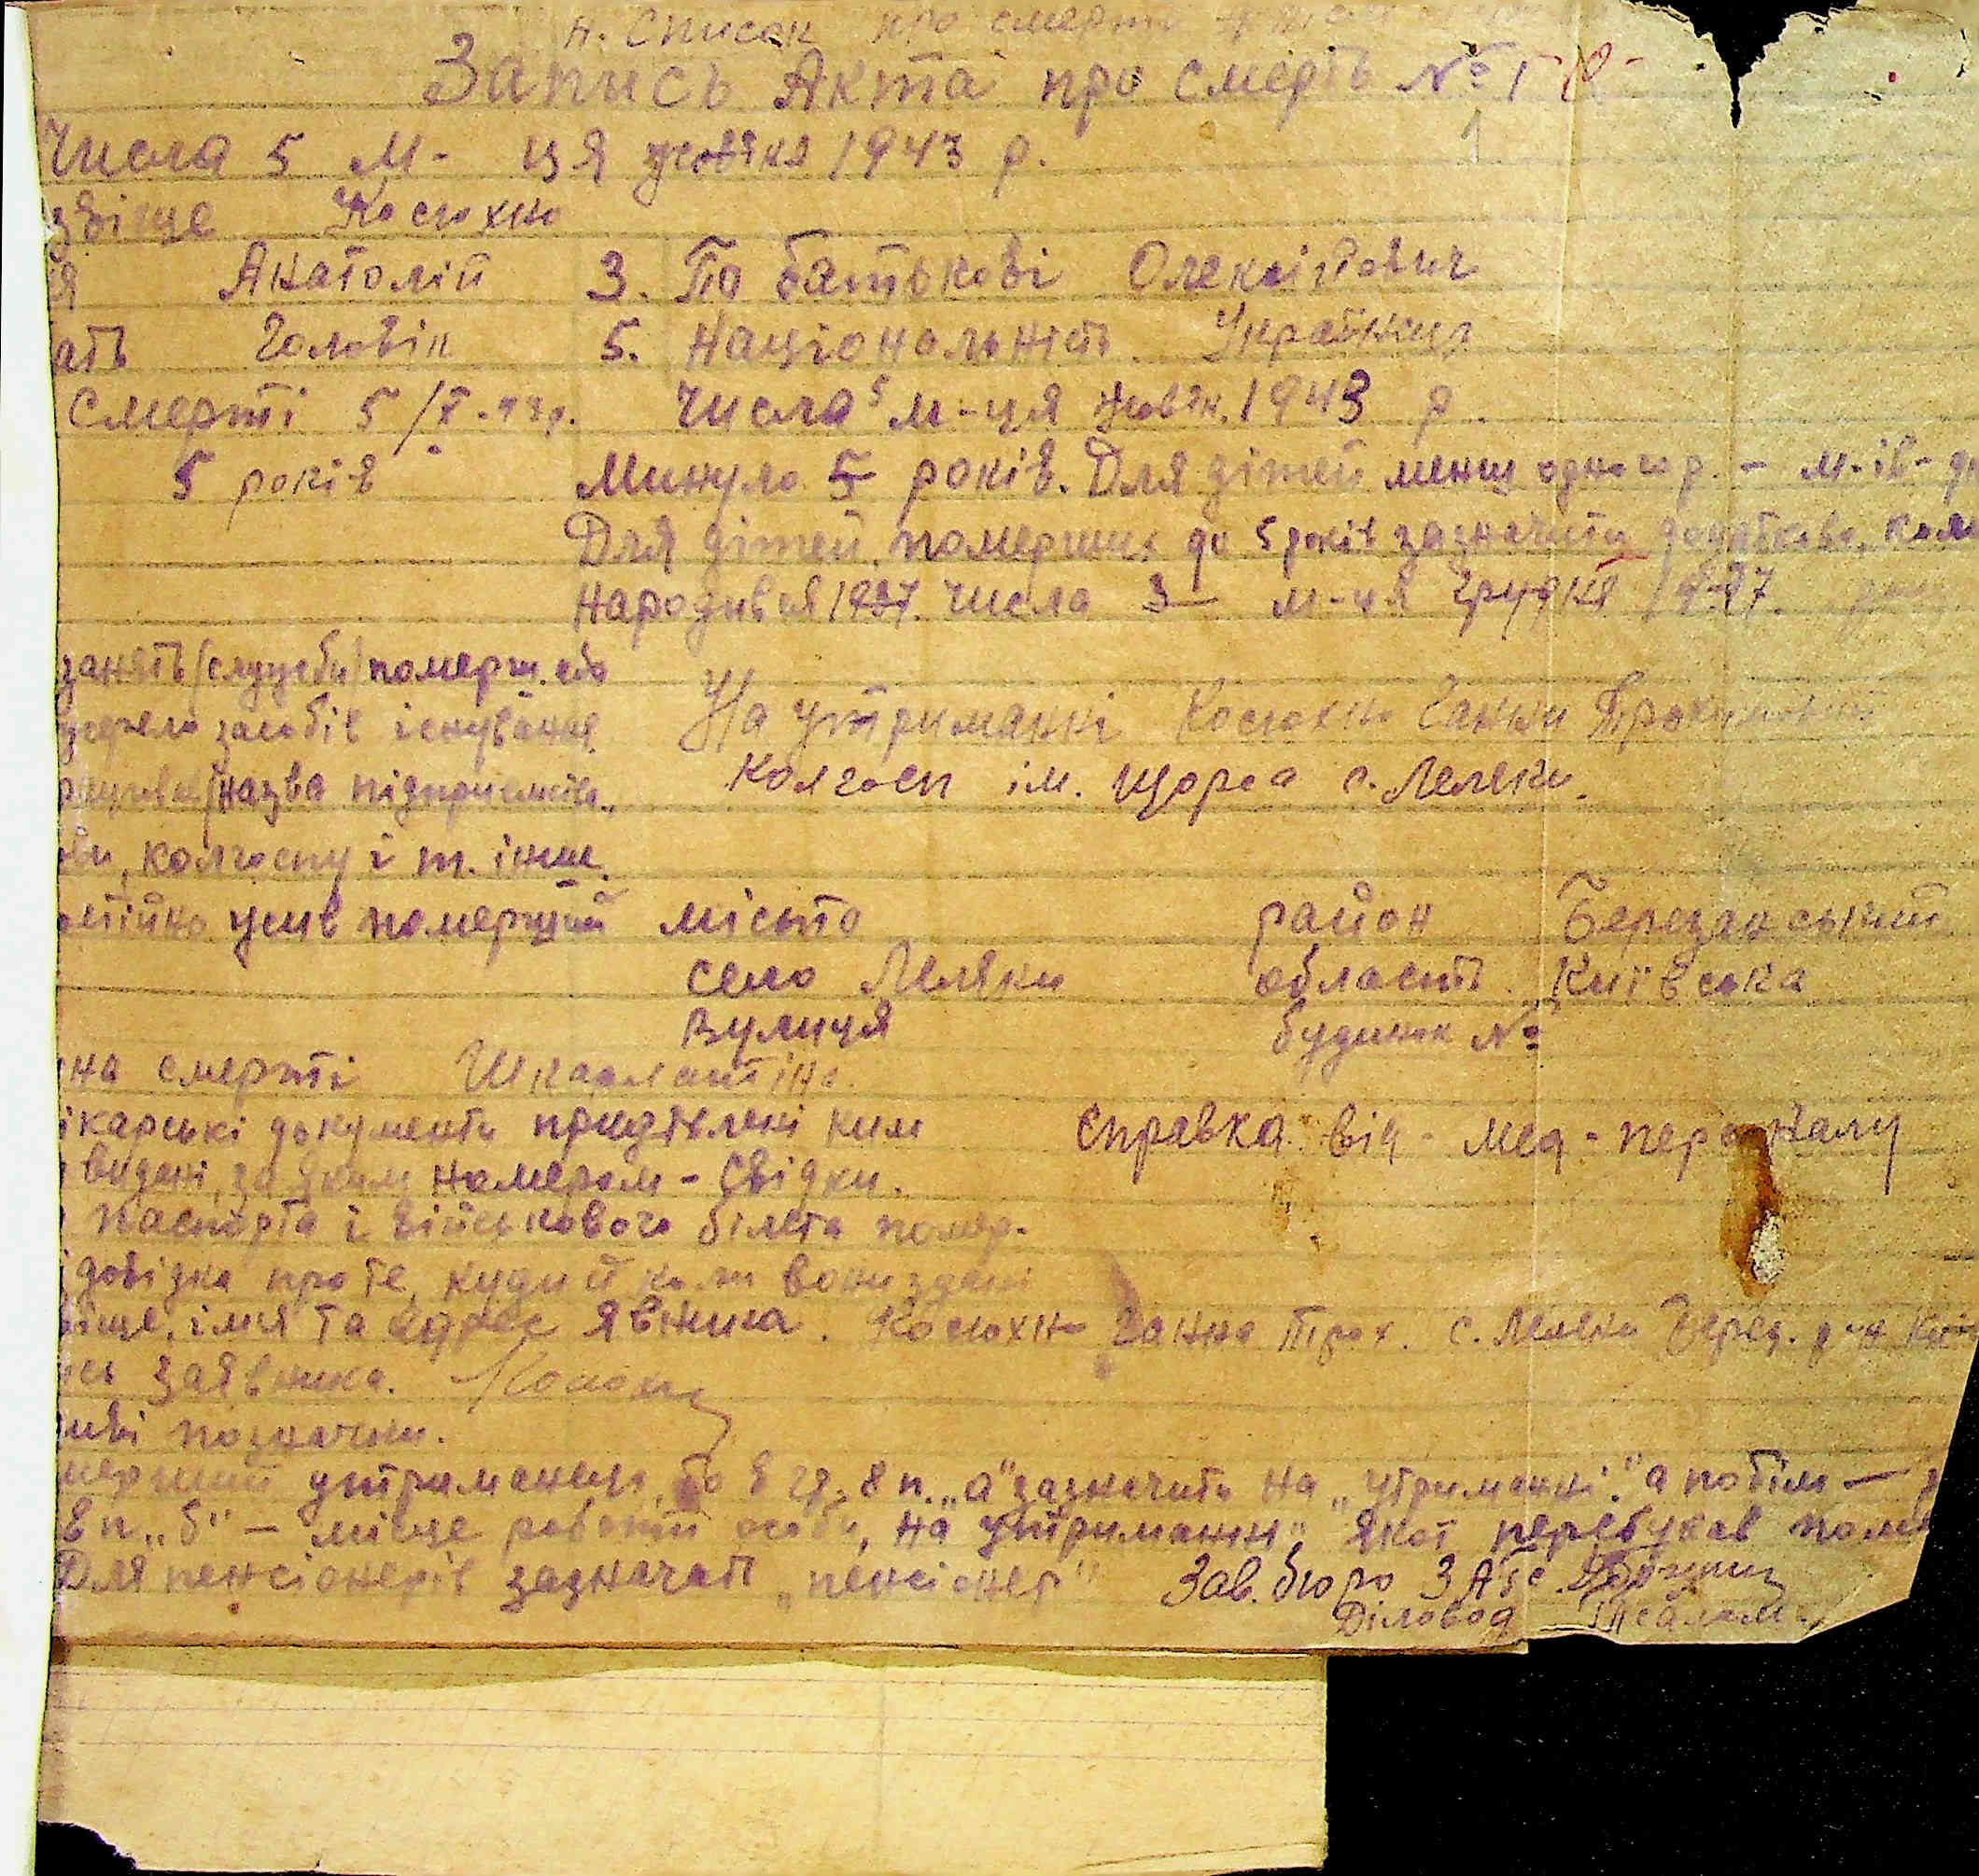 н. Список про смерть
Запись Акта про смерть № 1
Числа 5 м-ця жовтня 1943 р.
звіще Косюхно
я Анатолій 3. По батькові Олексійович
ать Чоловік 5. Національність Українец
Смерті 5/X-43р. Числа 5 м-ця жовтн. 1943 р.
5 років Минуло 5 років. Для дітей менш одного р. - м-ів-дн
Для дітей померших до 5 років зазначити додатково, коли
Народився 1937. Числа 3 м-ця Грудня 1937.
занять (служби) померш. або
жерело засобів існування На утриманні Косюхно Ганни
(назва підприємств., Колгосп ім. Щорса с. Леляки.
ви, колгоспу і т. інше.
стійно жив померший місьто район Березанський
село Леляки область Київська
Вулиця будинок №
на смерті Шкарлатіна.
ікарські документи придїлені ким Справка від - мед - персоналу
видані, за яким номером - Свідки.
паспорта і військового білета помер.
довідка про те, куди й коли вони здані
віще, імя та адрес явника. Косюхно Ганна Прох. с. Леляки Берез. р-на Київ
ись заявника.
иві позначки.
мерший утриманець, то в гр. 8 п. „а" зазначить на „утриманні." а потім —
8 п „б" — місце роботи особи, на утриманні якої перебував поме
Для пенсіонерів зазначать „пенсіонер" Зав. бюро ЗАГС
Діловод